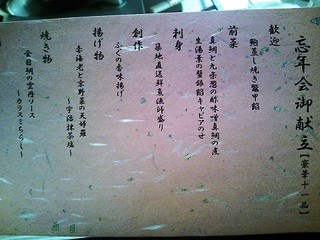 忘年会御献立【豪華十一品】
歓迎
鮑蒸し焼き鼈甲餡
前菜
真鯛と九条葱の酢味噌真鯛の煮
生湯葉の蟹銀餡キャビアのせ
刺身
築地直送鮮魚漁師盛り
創作
ふぐの香味揚げ
揚げ物
赤海老と京野菜の天婦羅
～宇治抹茶塩～
焼き物
金目鯛の雲丹ソース
～カラスミちらし～